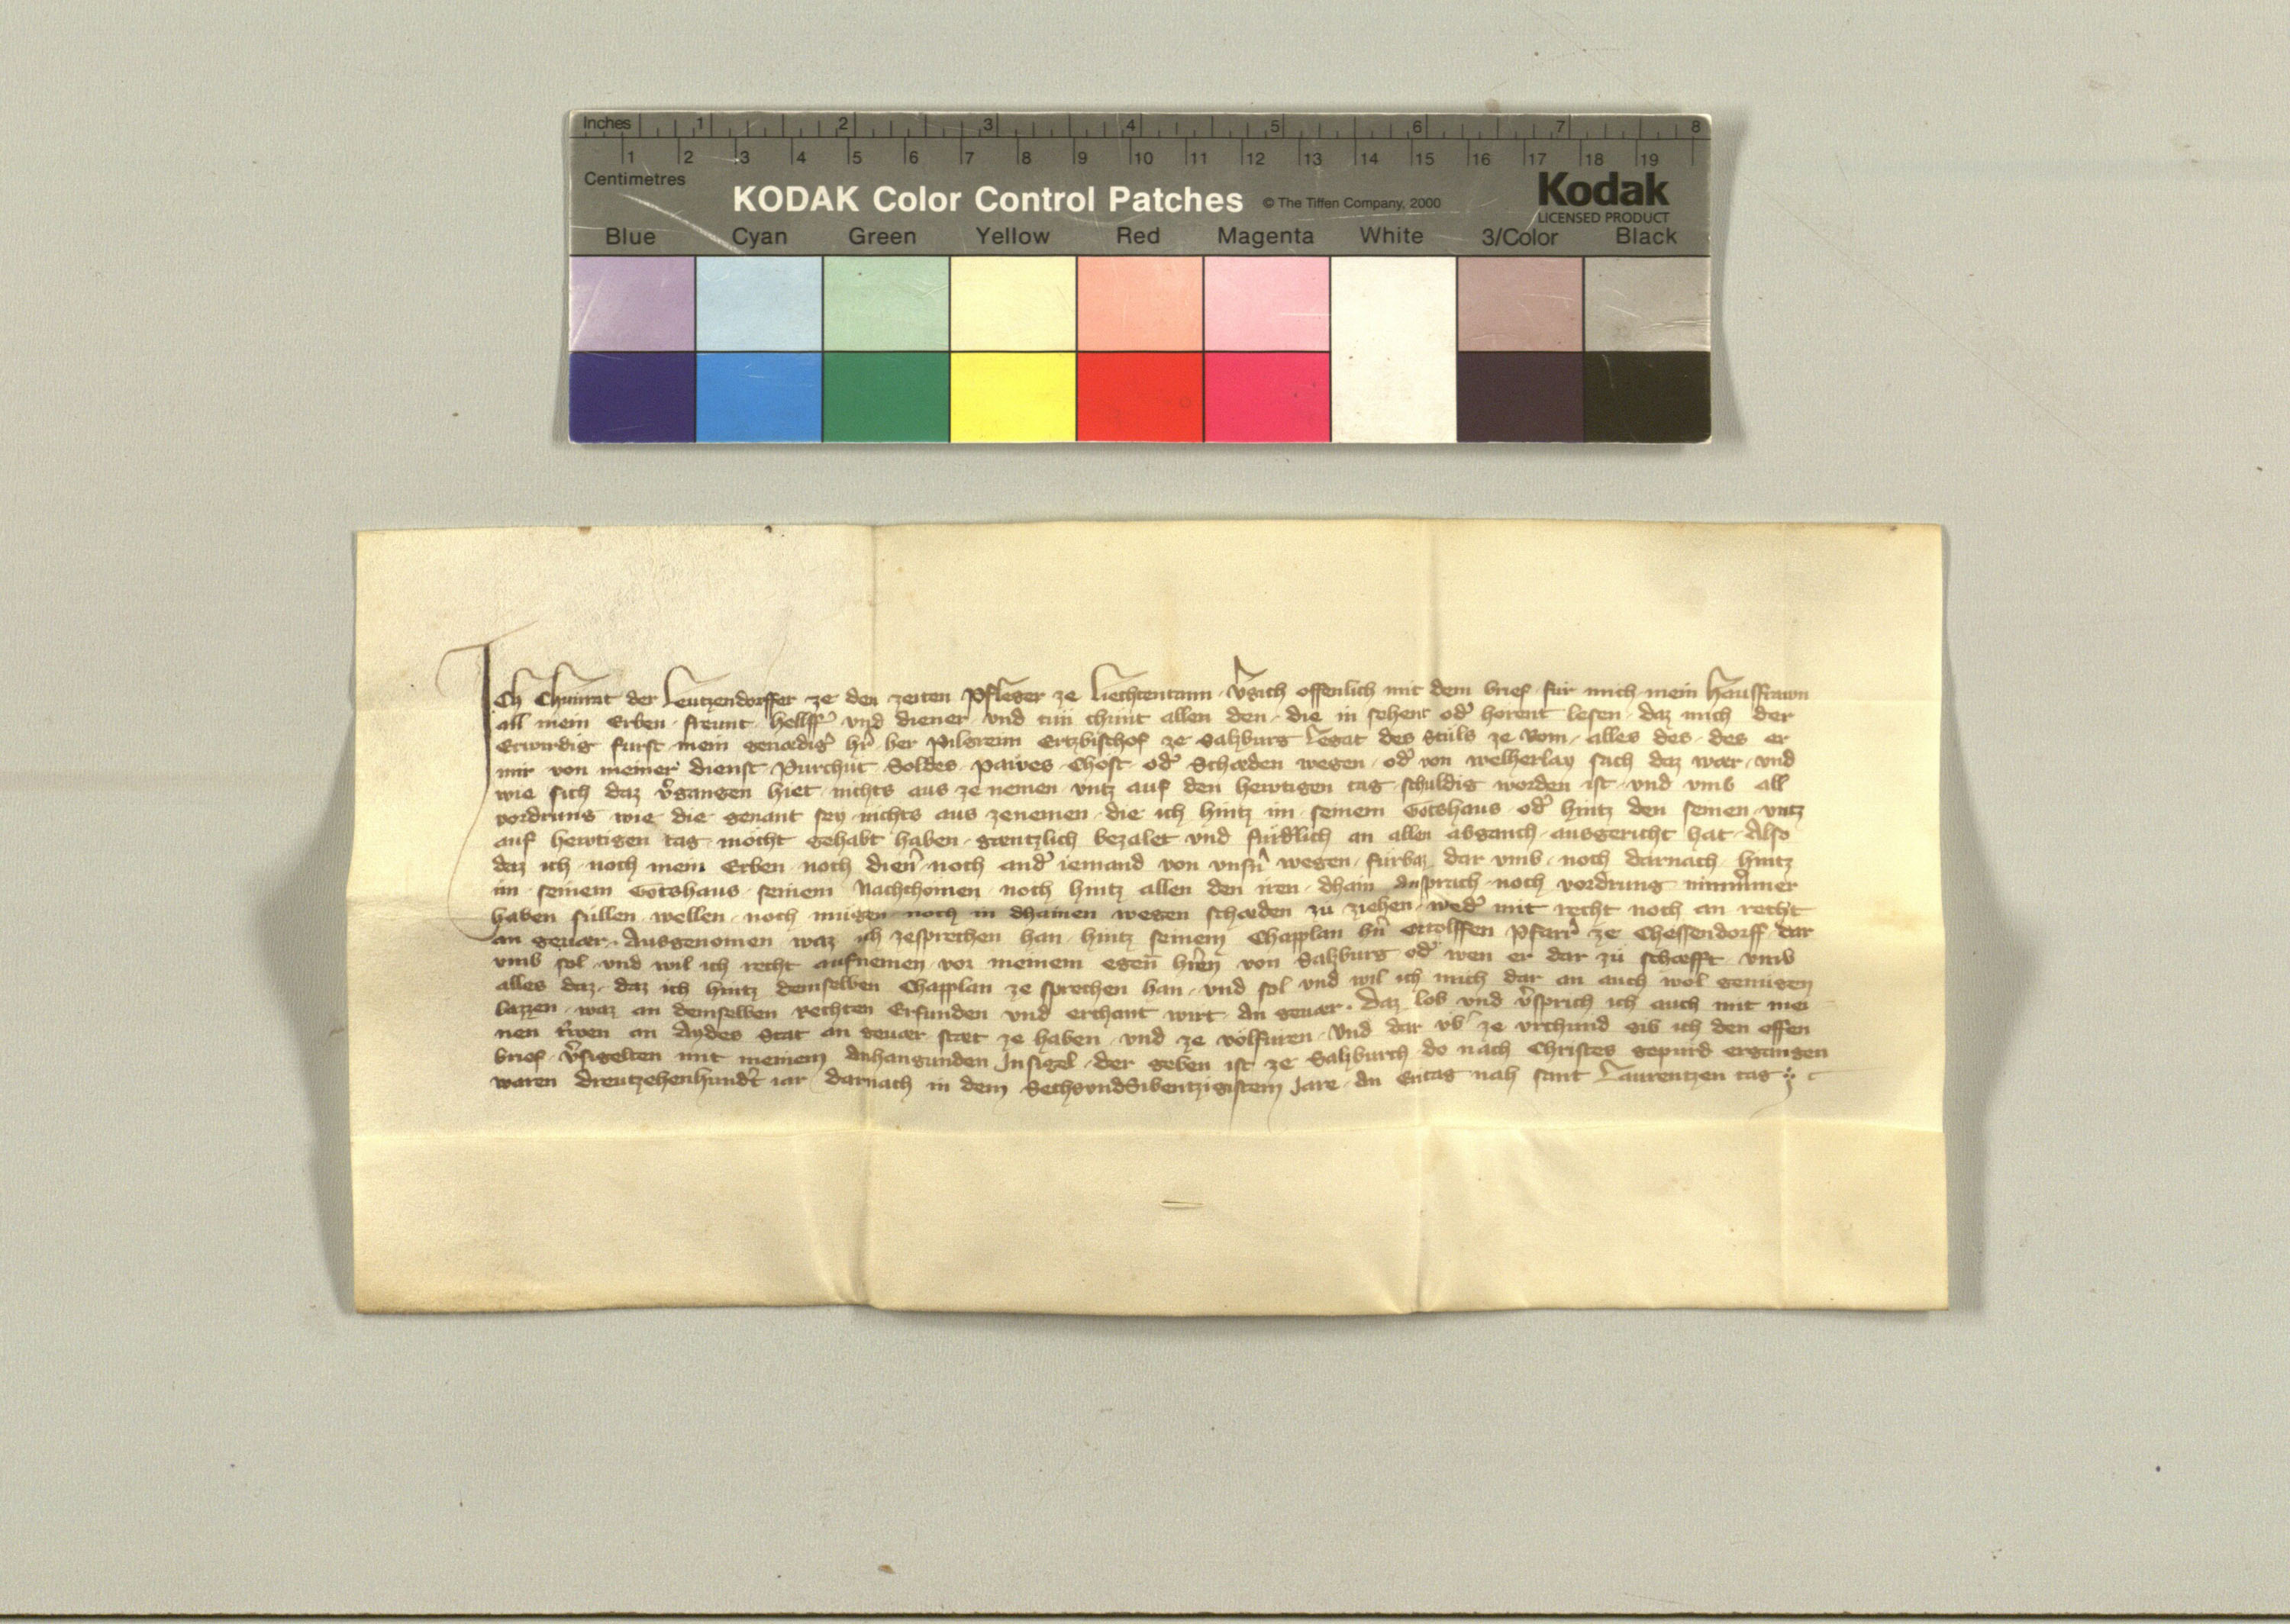 Inches 1 2 3 4 5 6 7 8
1 2 3 4 5 6 7 8 9 10 11 12 13 14 15 16 17 18 19
Centimetres
KODAK Color Control Patches © The Tiffen Company, 2000 Kodak
LICENSED PRODUCT
Blue Cyan Green Yellow Red Magenta White 3/Color Black
Ich Chunrat der Leutzendorffer ze den zeiten Pfleger ze Liechtentann v̂gich offenlich mit dem brief fur mich mein Hausfrawn
all mein Erben frewnt hellff̂ vnd diener vnd tun chunt allen den die in sehent od̂ horent lesen daz mich der
Erwirdig furst mein genædiĝ hr̂ her Pilgreim Ertzbischof ze Salzburg Legat des Stuls ze Rom alles des des er
mir von meiner dienst Purchut Soldes Pawes Chost od̂ Schæden wegen od̂ von welherlay sach daz wær vnd
wie sich daz v̂gangen hiet nichts aus ze nemen vntz auf den hewtigen tag schuldig worden ist vnd vmb all
vordrung wie die genant sey nichts aus zenemen die ich hintz im seinem Gotshaus od̂ hintz den seinen vntz
auf hewtigen tag mocht gehabt haben gæntzlich bezalet vnd fridlich an allen abganch ausgericht hat Also
daz ich noch mein Erben noch dien̂ noch and̂ iemand von vnsn̂ wegen furbaz dar vmb noch darnach hintz
im seinem Gotshaus seinem Nachchomen noch hintz allen den iren dhain ansprach noch vordrung nimm̂mer
haben sullen wellen noch mugen noch in dhainen wegen schæden zu ziehen wed̂ mit recht noch an recht
an geuær Ausgenomen waz ich zesprechen han hintz seinem Chapplan hn̂ Ortolffen Pfarr̂ ze Chessendorff dar
vmb sol vnd wil ich recht aufnemen vor meinem egen̄ hr̂en von Salzburg od̂ wen er dar zu schæfft vmb
alles daz daz ich hintz demselben Chapplan ze sprechen han vnd sol vnd wil ich mich dar an auch wol genugen
lazzen waz an demselben rechten Erfunden vnd erchant wirt An geuær Daz lob vnd v̂sprich ich auch mit mei
nen trwen an Aydes Stat an geuær stæt ze haben vnd ze volfuren Vnd dar vb̂ ze vrchund gib ich den offen
brief v̂sigelten mit meinem Anhangunden Insigel der geben ist ze Salzburch do nach Christes gepurd ergangen
waren dreutzehenhund̂t iar darnach in dem SechsvndSibentzigistem Jare An Eritag nah sant Laurentzen tag